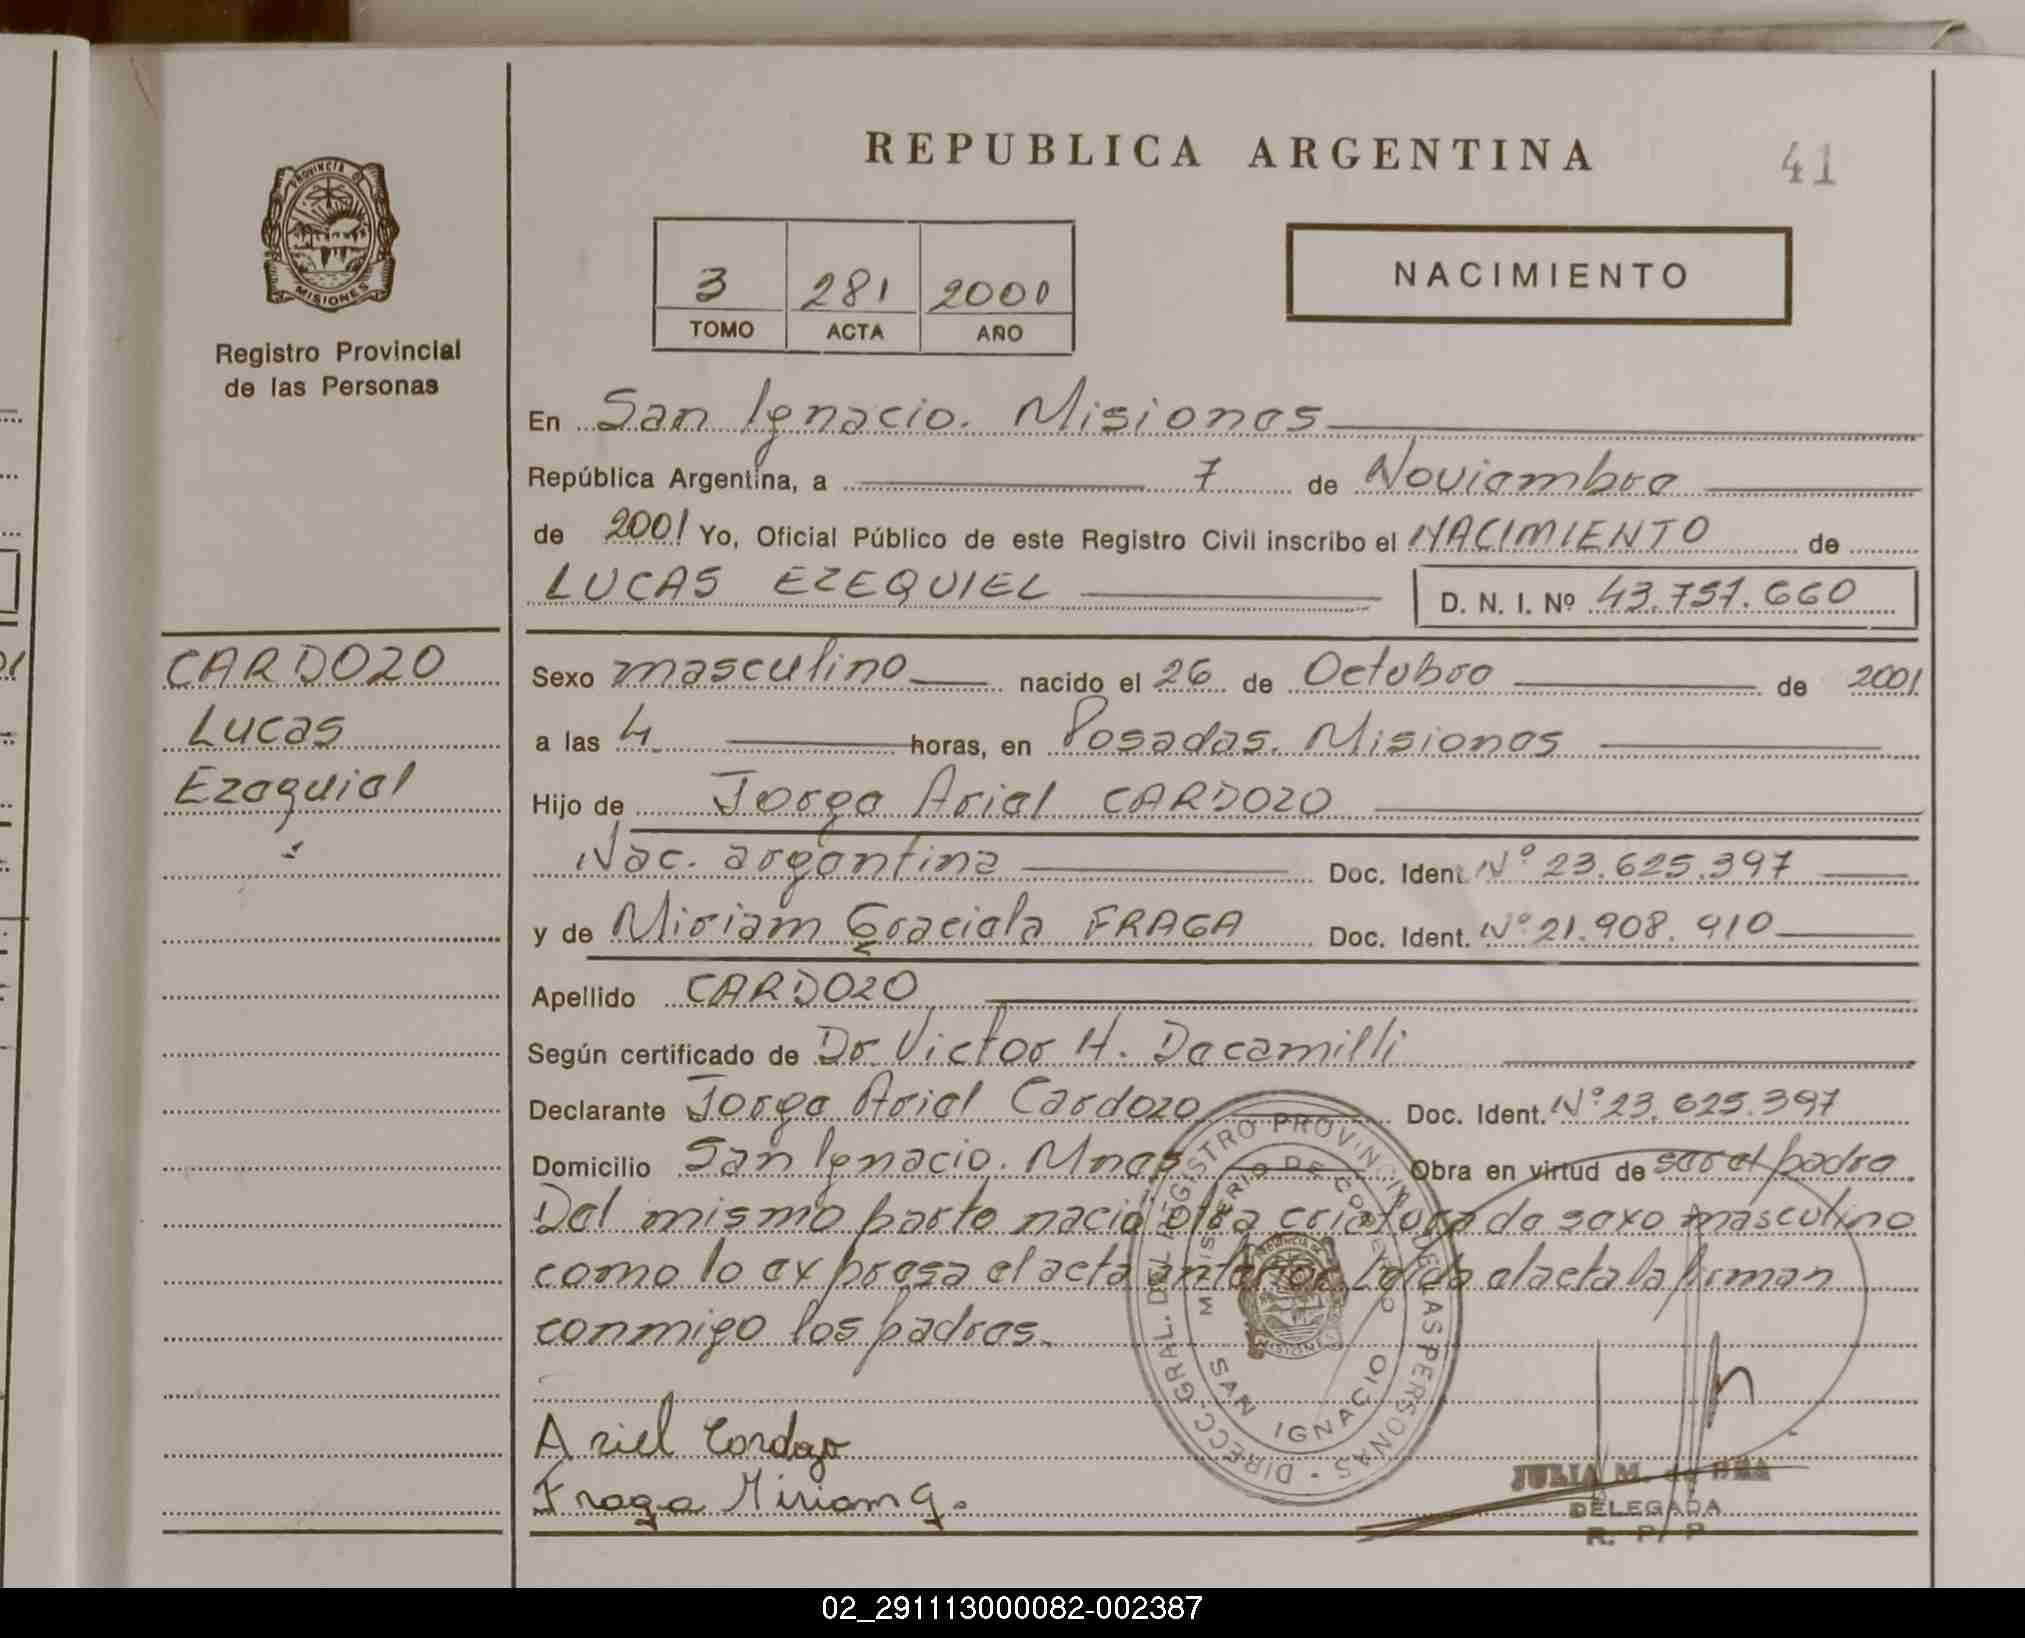 REPUBLICA ARGENTINA
41
PROVINCIA DE
MISIONES
Registro Provincial
de las Personas
3 281 2001
TOMO ACTA AÑO
NACIMIENTO
En San Ignacio. Misiones
República Argentina, a 7 de Noviembre
de 2001 Yo, Oficial Público de este Registro Civil inscribo el NACIMIENTO de
LUCAS EZEQUIEL D. N. I. Nº 43.757.660
CARDOZO
Lucas
Ezequiel
Sexo masculino nacido el 26 de Octubre de 2001
a las 4 horas, en Posadas. Misiones
Hijo de Jorge Ariel CARDOZO
Nac. argentina Doc. Ident. Nº 23.625.397
y de Miriam Graciela FRAGA Doc. Ident. Nº 21.908.910
Apellido CARDOZO
Según certificado de Dr. Victor H. Decamilli
Declarante Jorge Ariel Cardozo Doc. Ident. Nº 23.625.397
Domicilio San Ignacio. Mnes Obra en virtud de ser el padre
Del mismo parto nació otra criatura de sexo masculino
como lo expresa el acta anterior Leida el acta la firman
conmigo los padres.
Ariel Cardozo
Fraga Miriam G.
DIRECC. GRAL. DEL REGISTRO PROVINCIAL DE LAS PERSONAS
MINISTERIO DE GOBIERNO
SAN IGNACIO
JULIA M. de
DELEGADA
R. P. P
02_291113000082-002387